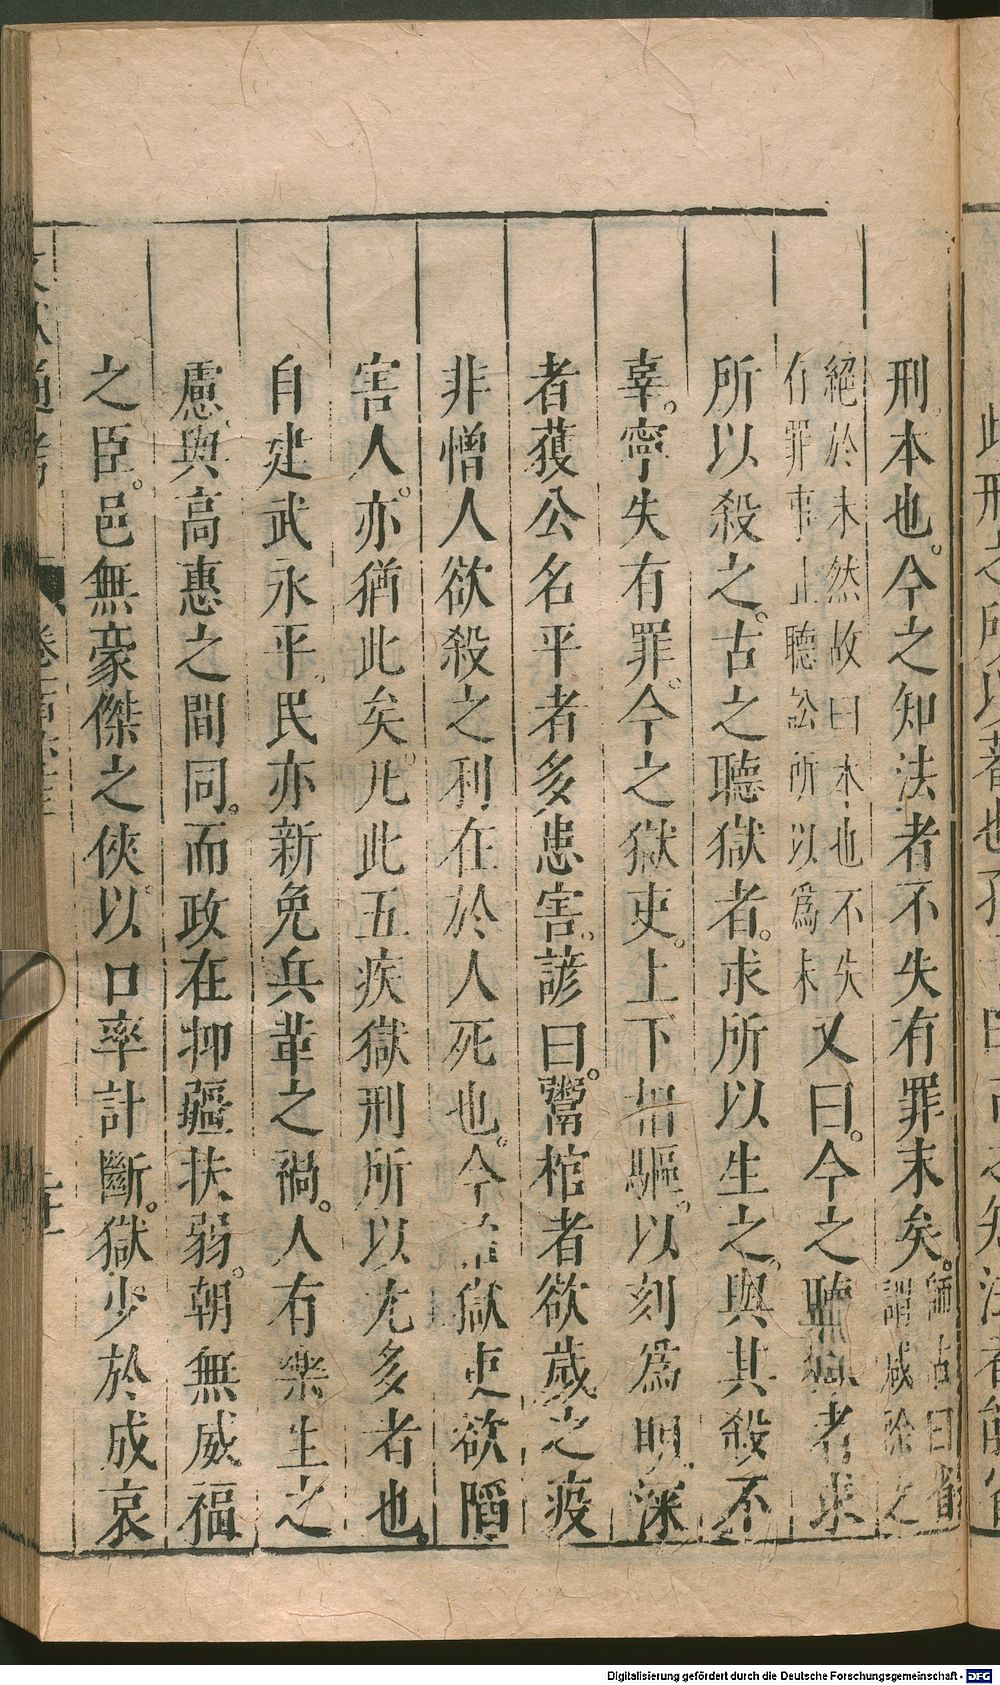 刑本也。今之知法者不失有罪末矣。師古曰省謂減除之
絕於未然故曰本也不失有罪事止聽訟所以爲末又曰。今之聽獄者求
所以殺之。古之聽獄者。求所以生之。與其殺不
辜。寧失有罪。今之獄吏。上下相驅。以刻爲明。深
者獲公名平者多患害。諺曰。鬻棺者欲歲之疫
非憎人欲殺之利在於人死也。今治獄吏欲陷
害人。亦猶此矣。凡此五疾獄刑所以尤多者也。
自建武永平。民亦新免兵革之禍。人有樂生之
慮。與高惠之間同。而政在抑彊扶弱。朝無威福
之臣。邑無豪傑之俠。以口率計斷。獄少於成哀
通考
Digitalisierung gefördert durch die Deutsche Forschungsgemeinschaft - DFG